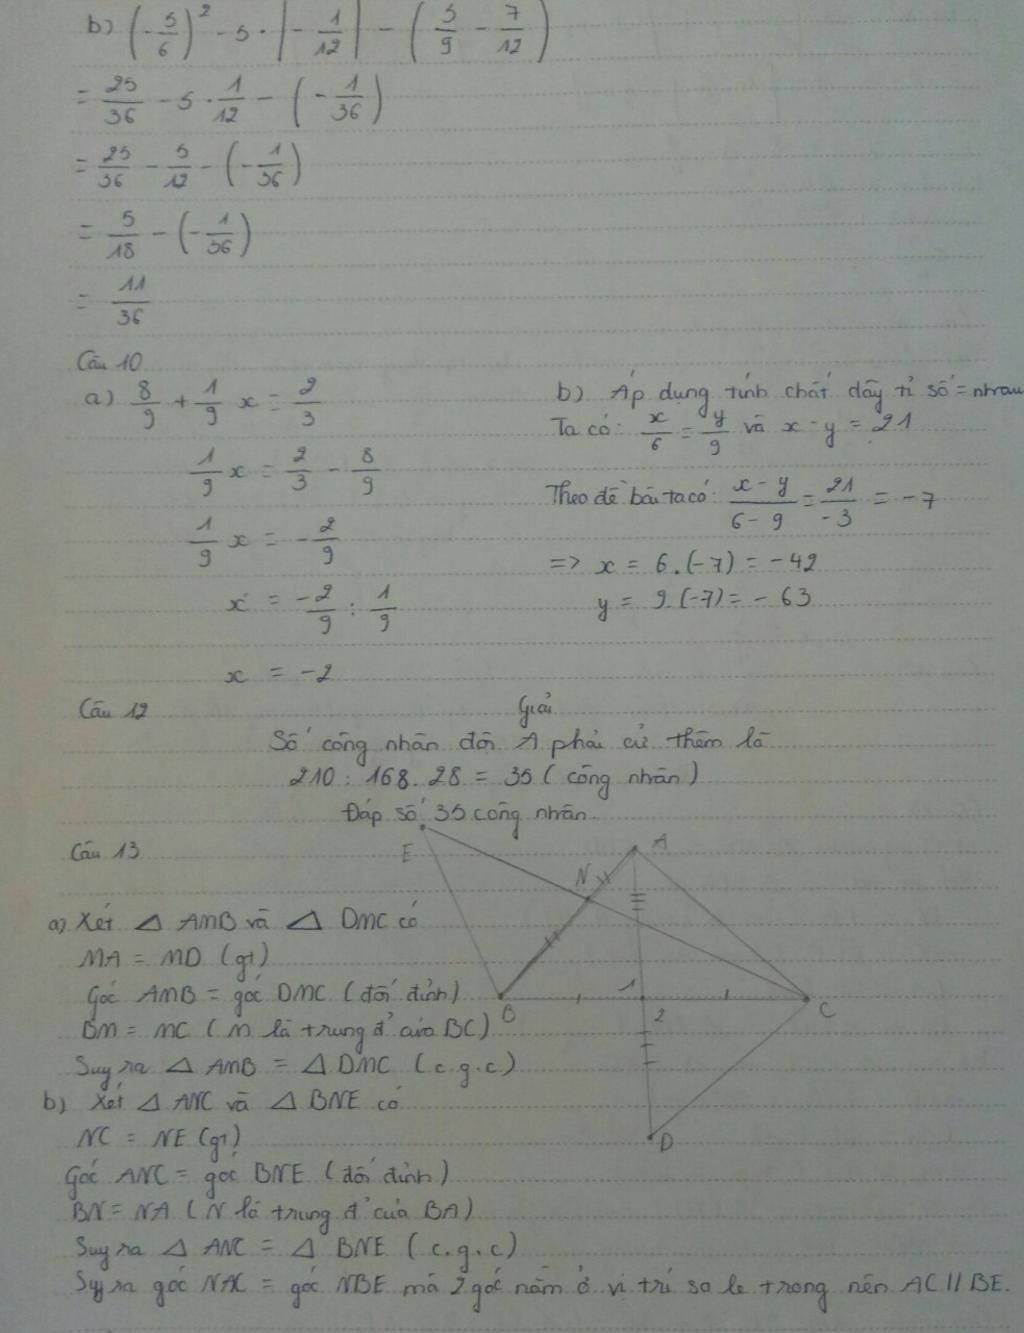 b) (-5/6)² - 5 · |-1/12| - (5/9 - 7/12)
= 25/36 - 5 · 1/12 - (-1/36)
= 25/36 - 5/12 - (-1/36)
= 5/18 - (-1/36)
= 11/36
Câu 10
a) 8/9 + 1/9 x = 2/3
1/9 x = 2/3 - 8/9
1/9 x = -2/9
x = -2/9 : 1/9
x = -2
b) Áp dụng tính chất dãy tỉ số = nhau
Ta có: x/6 = y/9 và x - y = 21
Theo đề bài ta có: x - y/6 - 9 = 21/-3 = -7
=> x = 6.(-7) = -42
y = 9.(-7) = -63
Câu 12
Giải
Số công nhân đội A phải cử thêm là
210 : 168 . 28 = 35 (công nhân)
Đáp số 35 công nhân.
Câu 13
E
A
N
B
1
2
C
D
a) Xét △ AMB và △ DMC có
MA = MD (gt)
Góc AMB = góc DMC (đối đỉnh)
BM = MC (M là trung đ' của BC)
Suy ra △ AMB = △ DMC (c.g.c)
b) Xét △ ANC và △ BNE có
NC = NE (gt)
Góc ANC = góc BNE (đối đỉnh)
BN = NA (N là trung đ' của BA)
Suy ra △ ANC = △ BNE (c.g.c)
Suy ra góc NAC = góc NBE mà 2 góc nằm ở vị trí so le trong nên AC // BE.